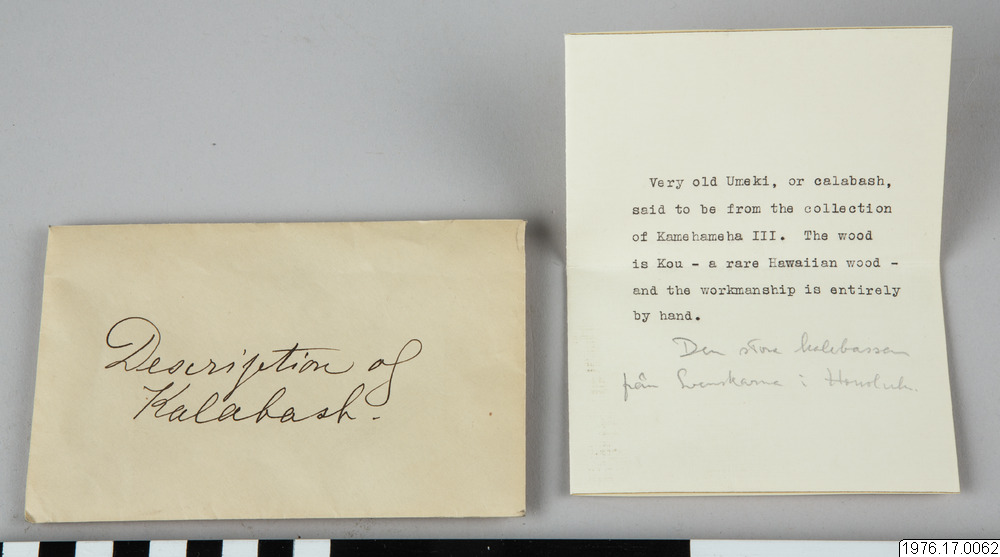 Description of
Kalabash.
Very old Umeki, or calabash,
said to be from the collection
of Kamehameha III. The wood
is Kou - a rare Hawaiian wood -
and the workmanship is entirely
by hand.
Den stora kalebassen
från Svenskarna i Honolulu.
1976.17.0062